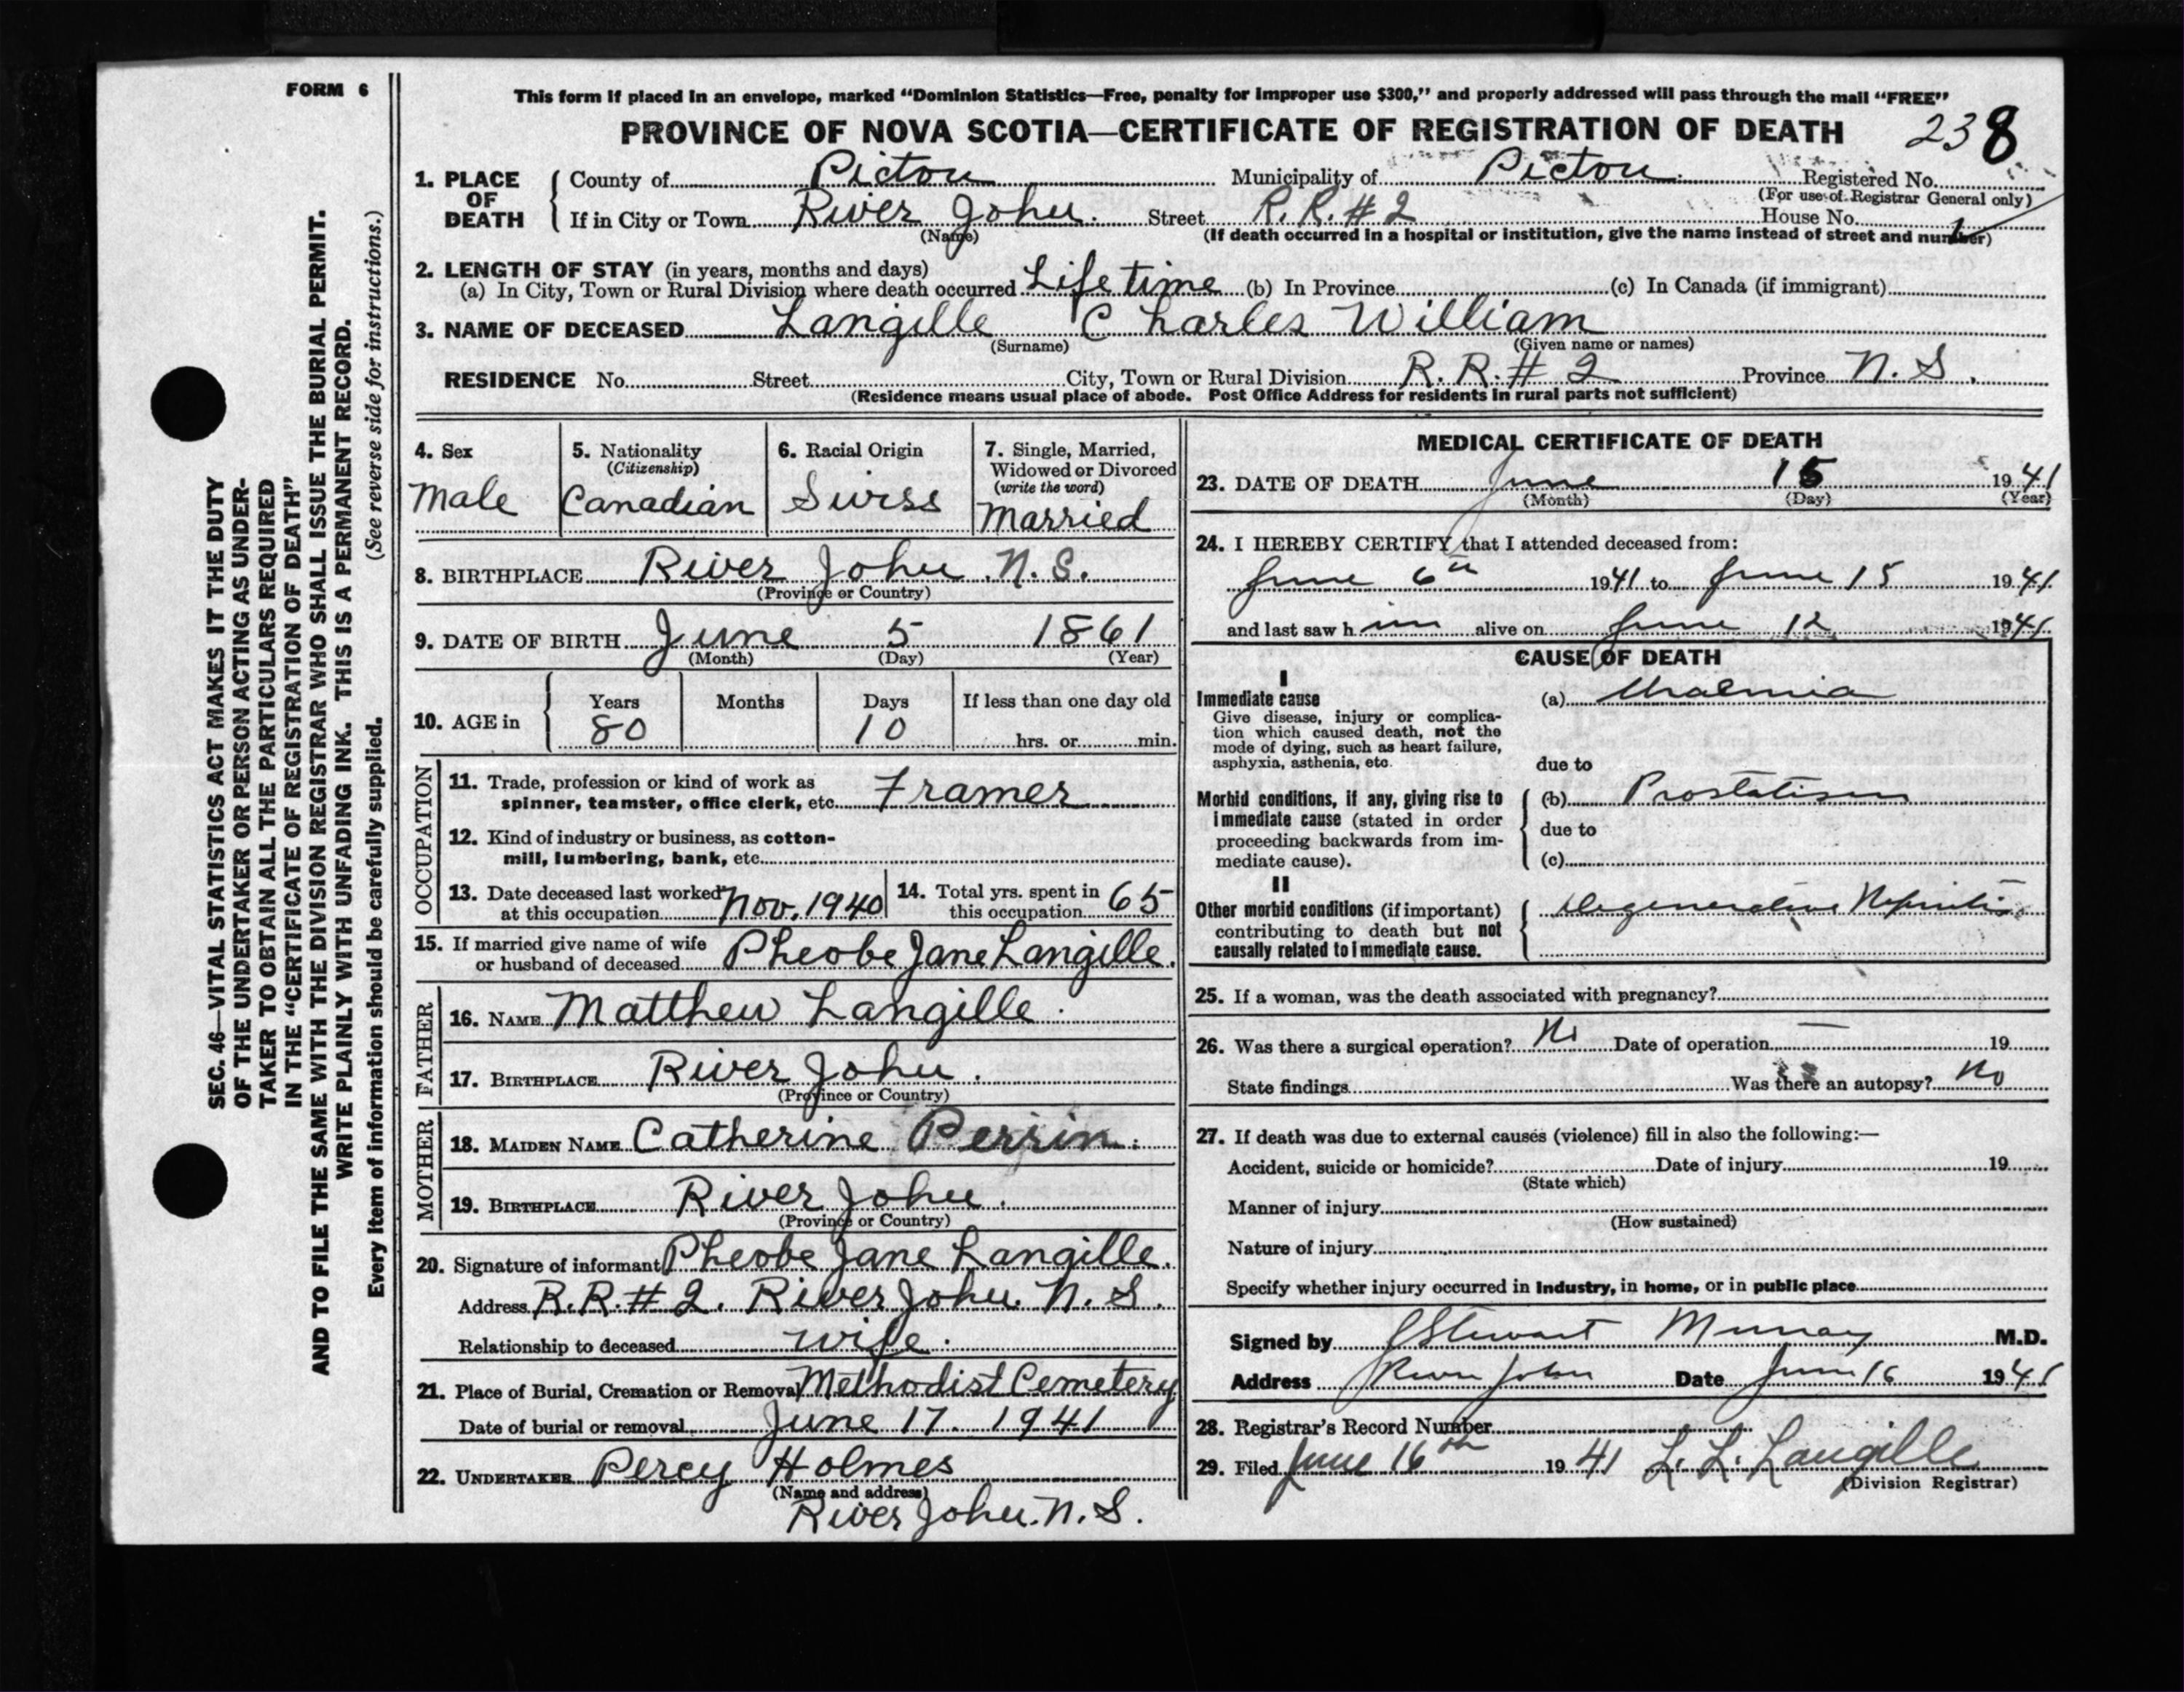 FORM 6
This form if placed in an envelope, marked “Dominion Statistics—Free, penalty for improper use $300,” and properly addressed will pass through the mail “FREE”
PROVINCE OF NOVA SCOTIA—CERTIFICATE OF REGISTRATION OF DEATH 238
1. PLACE OF DEATH
County of Pictou Municipality of Pictou Registered No.
(For use of Registrar General only)
If in City or Town River John. Street R.R. #2 House No.
(Name) (If death occurred in a hospital or institution, give the name instead of street and number)
2. LENGTH OF STAY (in years, months and days)
(a) In City, Town or Rural Division where death occurred Life time (b) In Province (c) In Canada (if immigrant)
3. NAME OF DECEASED Langille Charles William
(Surname) (Given name or names)
RESIDENCE No. Street City, Town or Rural Division R. R. # 2 Province N. S.
(Residence means usual place of abode. Post Office Address for residents in rural parts not sufficient)
4. Sex
Male
5. Nationality
(Citizenship)
Canadian
6. Racial Origin
Swiss
7. Single, Married,
Widowed or Divorced
(write the word)
Married
8. BIRTHPLACE River John N.S.
(Province or Country)
9. DATE OF BIRTH June 5 1861
(Month) (Day) (Year)
10. AGE in
Years Months Days If less than one day old
80 10 hrs. or min.
OCCUPATION
11. Trade, profession or kind of work as
spinner, teamster, office clerk, etc. Framer
12. Kind of industry or business, as cotton-
mill, lumbering, bank, etc.
13. Date deceased last worked
at this occupation Nov. 1940
14. Total yrs. spent in
this occupation 65
15. If married give name of wife
or husband of deceased Pheobe Jane Langille.
FATHER
16. NAME Matthew Langille
17. BIRTHPLACE River John.
(Province or Country)
MOTHER
18. MAIDEN NAME Catherine Perrin.
19. BIRTHPLACE River John.
(Province or Country)
20. Signature of informant Pheobe Jane Langille.
Address R.R. # 2. River John. N. S.
Relationship to deceased wife.
21. Place of Burial, Cremation or Removal Methodist Cemetery
Date of burial or removal June 17. 1941
22. UNDERTAKER Percy Holmes
(Name and address)
River John. N. S.
MEDICAL CERTIFICATE OF DEATH
23. DATE OF DEATH June 15 1941
(Month) (Day) (Year)
24. I HEREBY CERTIFY that I attended deceased from:
June 6th 1941 to June 15 1941
and last saw him alive on June 12 1941
CAUSE OF DEATH
I
Immediate cause
Give disease, injury or complica-
tion which caused death, not the
mode of dying, such as heart failure,
asphyxia, asthenia, etc.
(a) Uraemia
due to
Morbid conditions, if any, giving rise to
immediate cause (stated in order
proceeding backwards from im-
mediate cause).
(b) Prostatism
due to
(c)
II
Other morbid conditions (if important)
contributing to death but not
causally related to immediate cause.
Degenerative Nephritis.
25. If a woman, was the death associated with pregnancy?
26. Was there a surgical operation? No Date of operation — 19
State findings Was there an autopsy? No
27. If death was due to external causes (violence) fill in also the following:—
Accident, suicide or homicide? Date of injury 19
(State which)
Manner of injury
(How sustained)
Nature of injury
Specify whether injury occurred in industry, in home, or in public place
Signed by J Stewart Murray M.D.
Address River John Date June 16 1941
28. Registrar's Record Number
29. Filed June 16th 1941 L. L. Langille
(Division Registrar)
SEC. 46—VITAL STATISTICS ACT MAKES IT THE DUTY
OF THE UNDERTAKER OR PERSON ACTING AS UNDER-
TAKER TO OBTAIN ALL THE PARTICULARS REQUIRED
IN THE “CERTIFICATE OF REGISTRATION OF DEATH”
AND TO FILE THE SAME WITH THE DIVISION REGISTRAR WHO SHALL ISSUE THE BURIAL PERMIT.
WRITE PLAINLY WITH UNFADING INK. THIS IS A PERMANENT RECORD.
Every item of information should be carefully supplied. (See reverse side for instructions.)